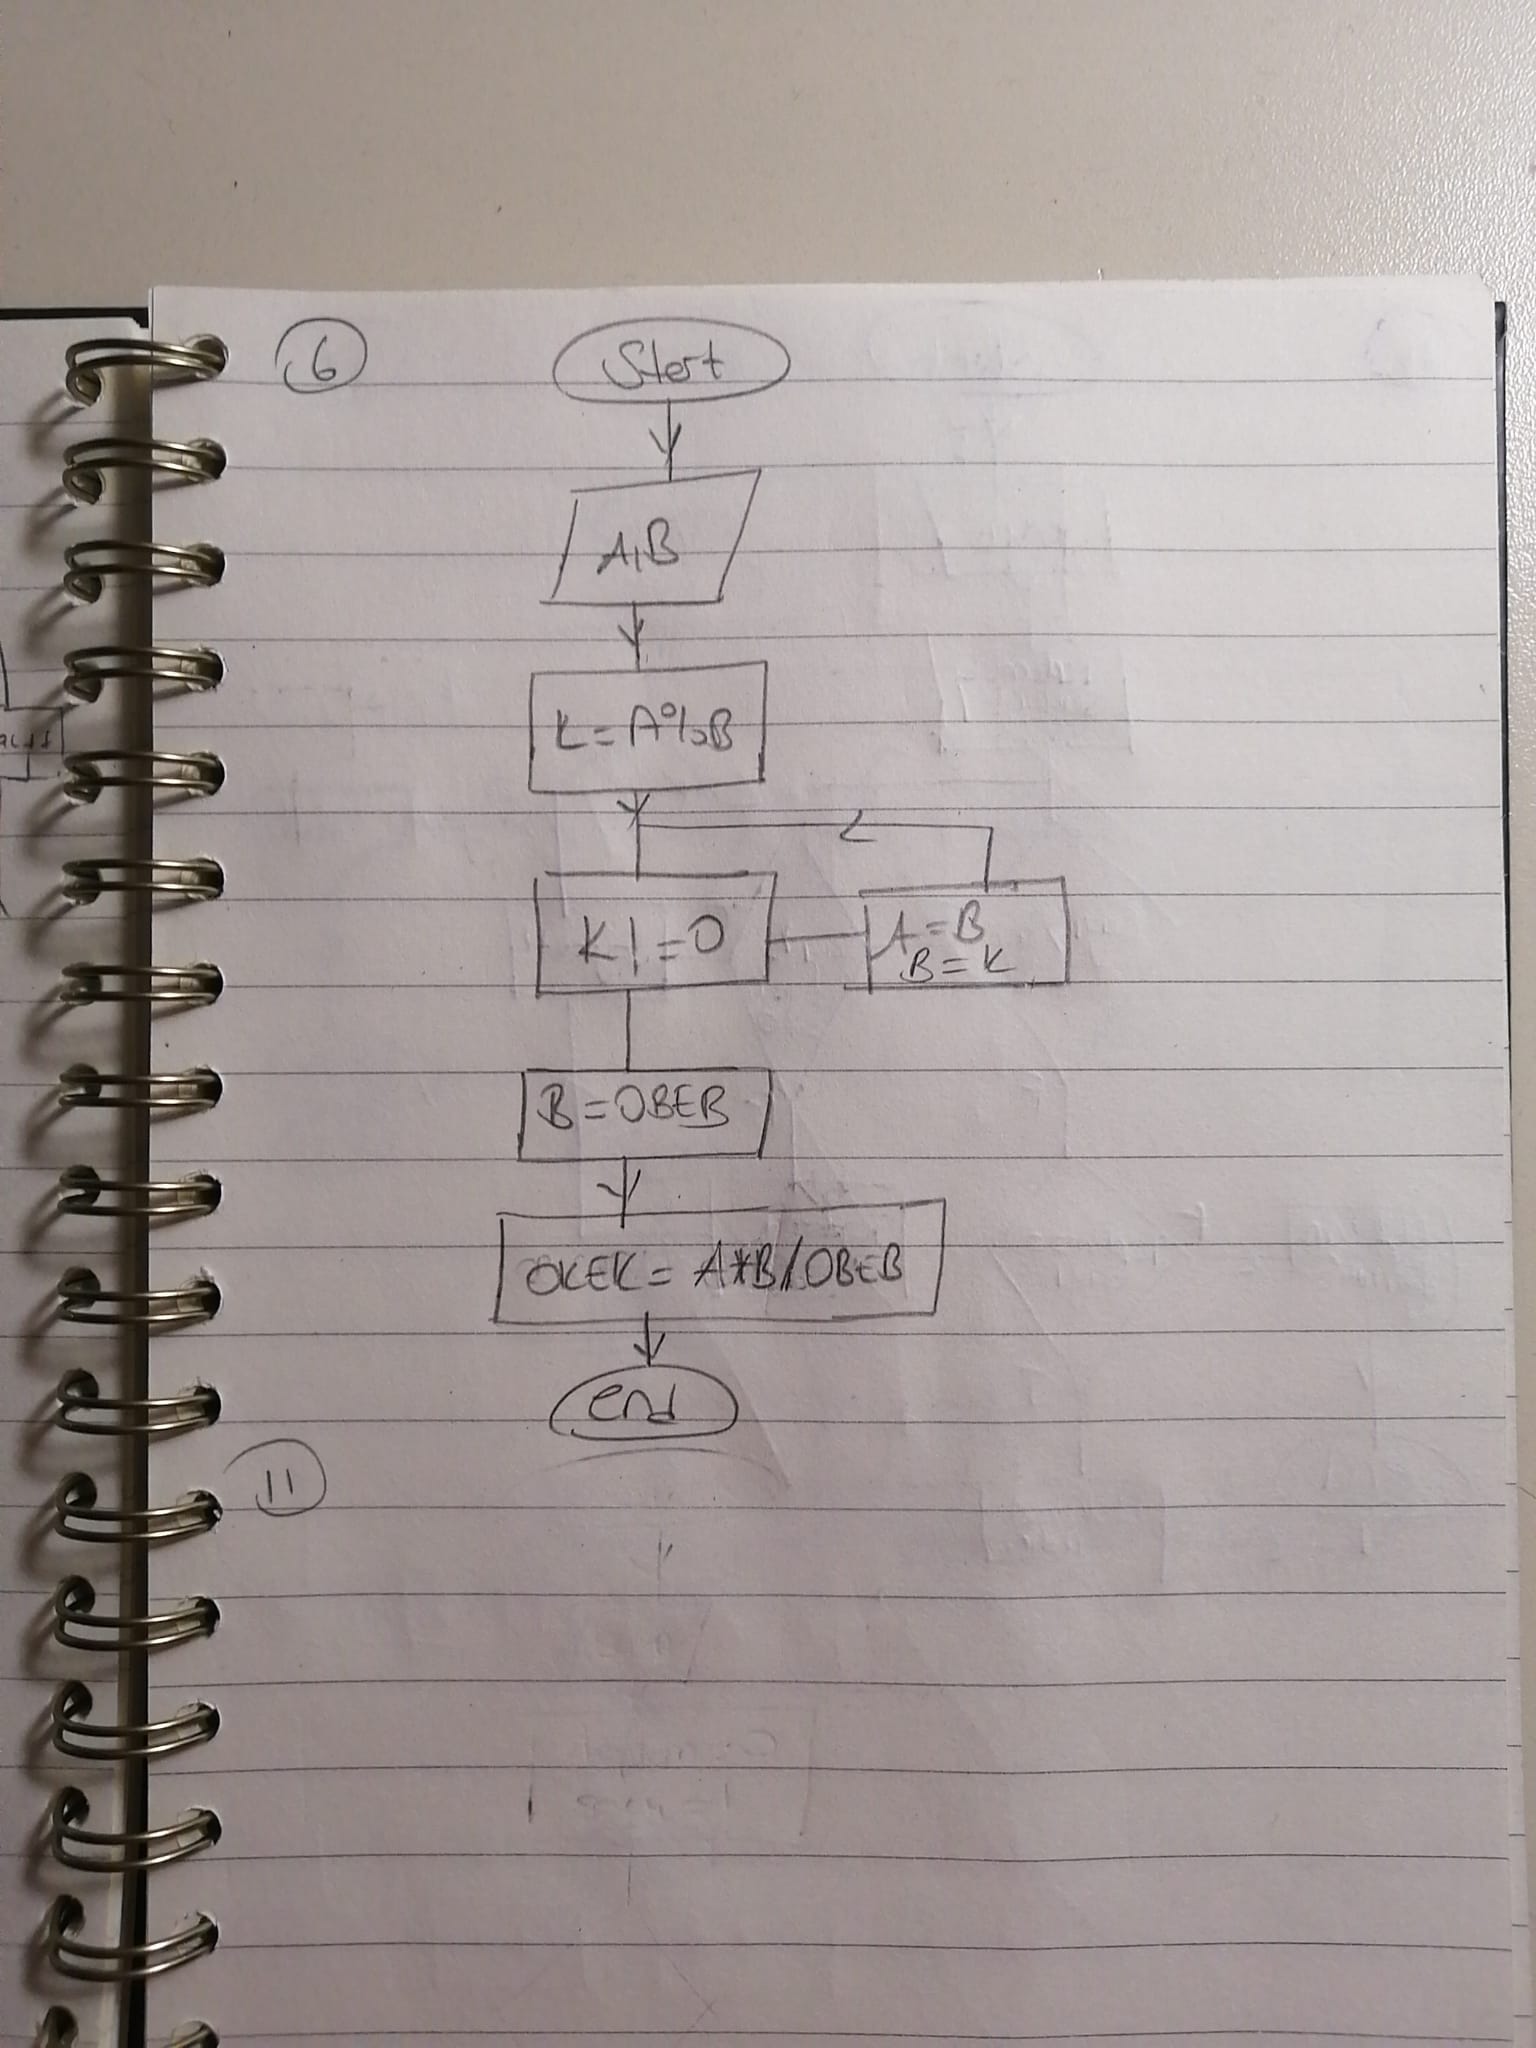 6
Start
A,B
K=A%B
K!=0
A=B
B=K
B=OBEB
OKEK=A*B/OBEB
end
11